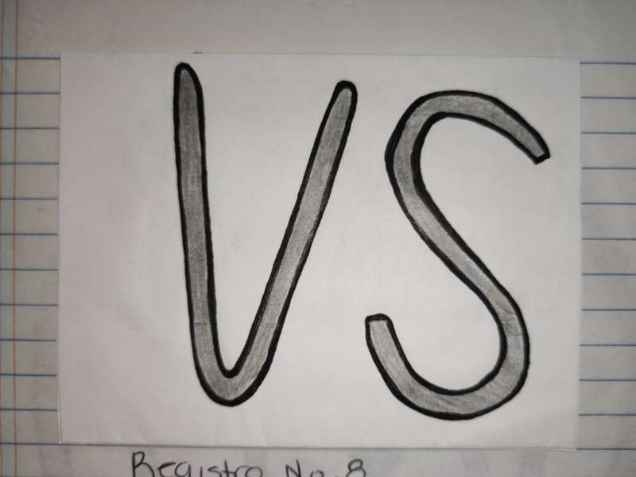 VS
Registro No. 8